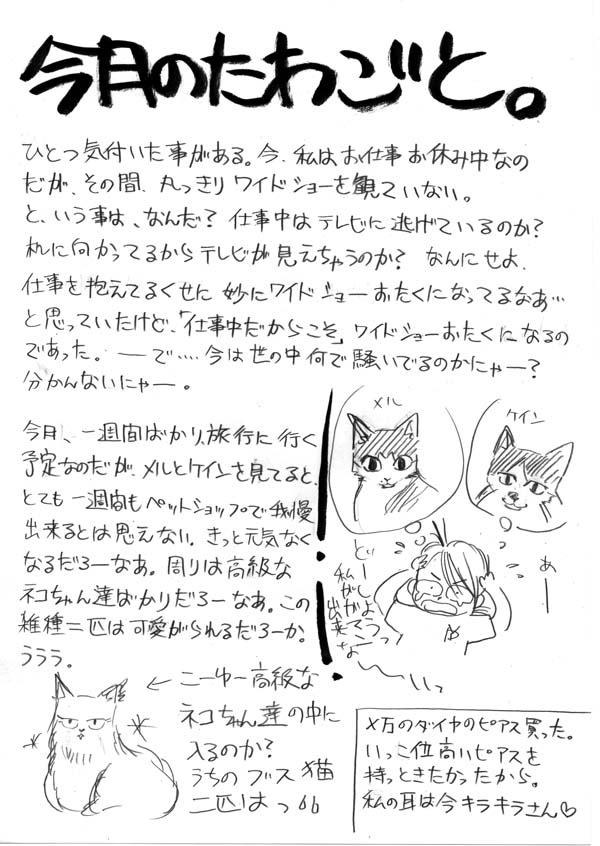 今月のたわごと。
ひとつ気付いた事がある。今、私はお仕事お休み中なの
だが、その間、丸っきりワイドショーを観ていない。
と、いう事は、なんだ？仕事中はテレビに逃げているのか？
机に向かってるからテレビが見えちゃうのか？なんにせよ、
仕事を抱えてるくせに妙にワイドショーおたくになってるなあ…
と思っていたけど、「仕事中だからこそ」ワイドショーおたくになるの
であった。―で‥‥今は世の中何で騒いでるのかにゃー？
分かんないにゃー。
今月、一週間ばかり、旅行に行く
予定なのだが、メルとケインを見てると、
とても一週間もペットショップで我慢
出来るとは思えない。きっと元気なく
なるだろーなあ。周りは高級な
ネコちゃん達ばかりだろーなあ。この
雑種二匹は可愛がられるだろーか？
ううう。
メル
ケイン
あー
どー
私がしがよう
出来てこっ
なー
〜いっ
←こーゆー高級な
ネコちゃん達の中に
入るのか？
うちのブス猫
二匹はっ
メ万のダイヤのピアス買った。
いっこ位高いピアスを
持っときたかったから。
私の耳は今キラキラさん♡